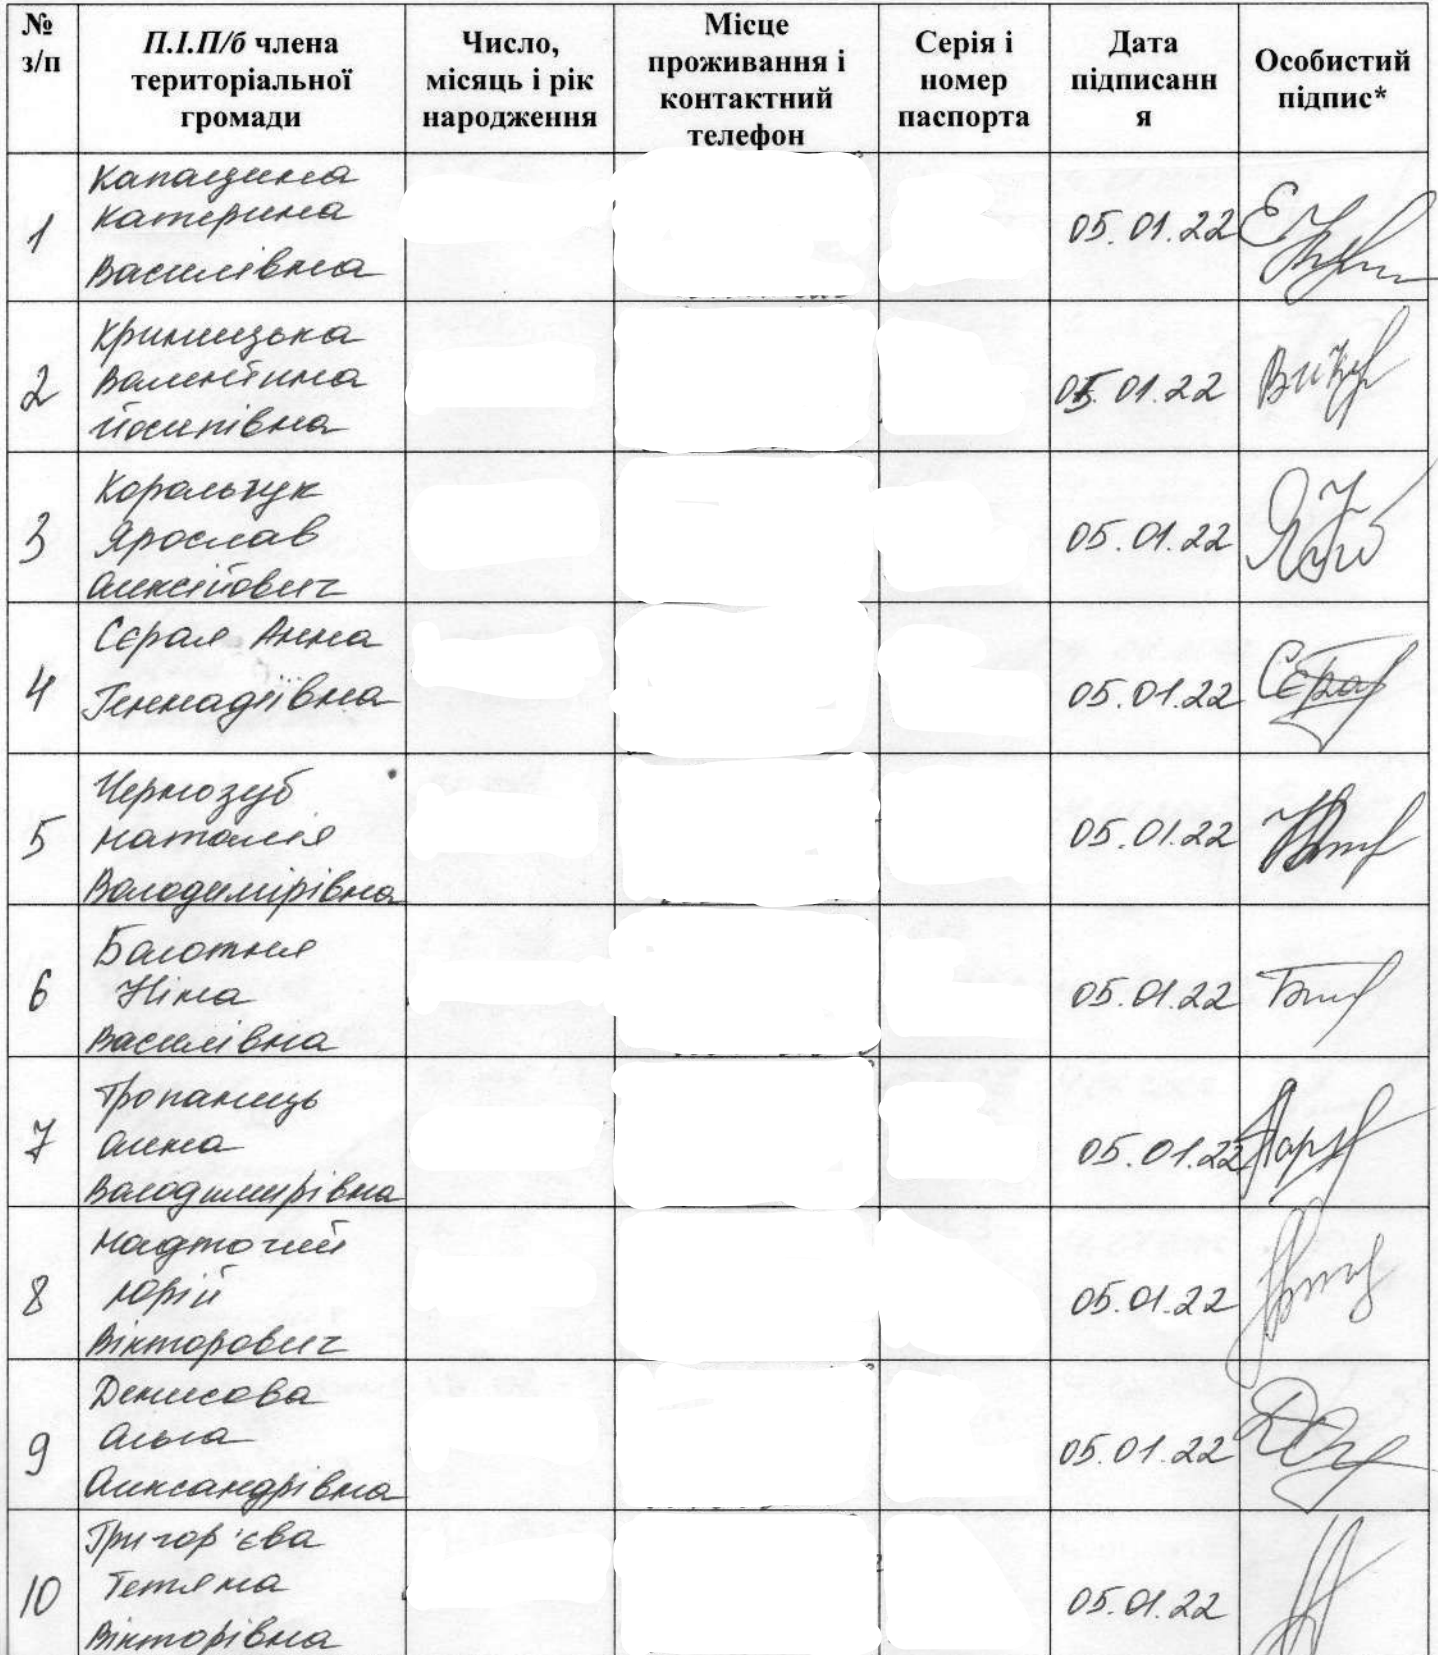 №
з/п
П.І.П/б члена
територіальної
громади
Число,
місяць і рік
народження
Місце
проживання і
контактний
телефон
Серія і
номер
паспорта
Дата
підписанн
я
Особистий
підпис*
1
Капащина
Катерина
Василівна
05.01.22
2
Криницька
Валентина
Йосипівна
05.01.22
3
Коральчук
Ярослав
Олексійович
05.01.22
4
Сєрая Анна
Геннадіївна
05.01.22
5
Чернозуб
Наталія
Володимирівна
05.01.22
6
Болотня
Ніна
Василівна
05.01.22
7
Тропанець
Володимирівна
05.01.22
8
Надточий
Юрій
Вікторович
05.01.22
9
Денисова
Ольга
Олександрівна
05.01.22
10
Григор'єва
Тетяна
Вікторівна
05.01.22